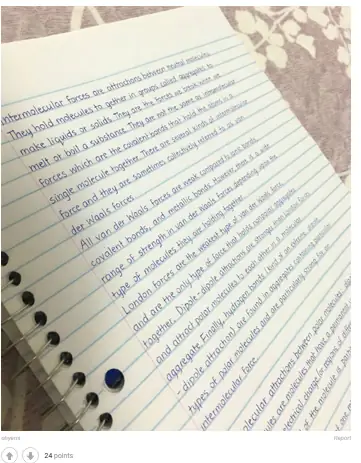 intermolecular forces are attractions between neutral molecules.
They hold molecules together in groups called aggregates to
make liquids or solids. They are the forces we break when we
melt or boil a substance. They are not the same as intramolecular
forces which are the covalent bonds that hold the atoms in a
single molecule together. There are several kinds of intermolecular
force and they are sometimes collectively referred to as van
der Waals forces.
All van der Waals forces are weak compared to ionic bonds,
covalent bonds, and metallic bonds. However, there is a wide
range of strength in van der Waals forces depending upon the
type of molecules they are holding together.
London forces are the weakest type of van der Waals force
and are the only type of force that holds nonpolar aggregates
together. Dipole-dipole attractions are stronger than London forces
and attract polar molecules to each other in a molecular
aggregate. Finally, hydrogen bonds (kind of an extreme
dipole attraction) are found in aggregates containing particular
types of polar molecules and are particularly strong for
intermolecular force.
attractions between polar molecules
are molecules that have a
electrical charge
of the molecule is
Report
24 points